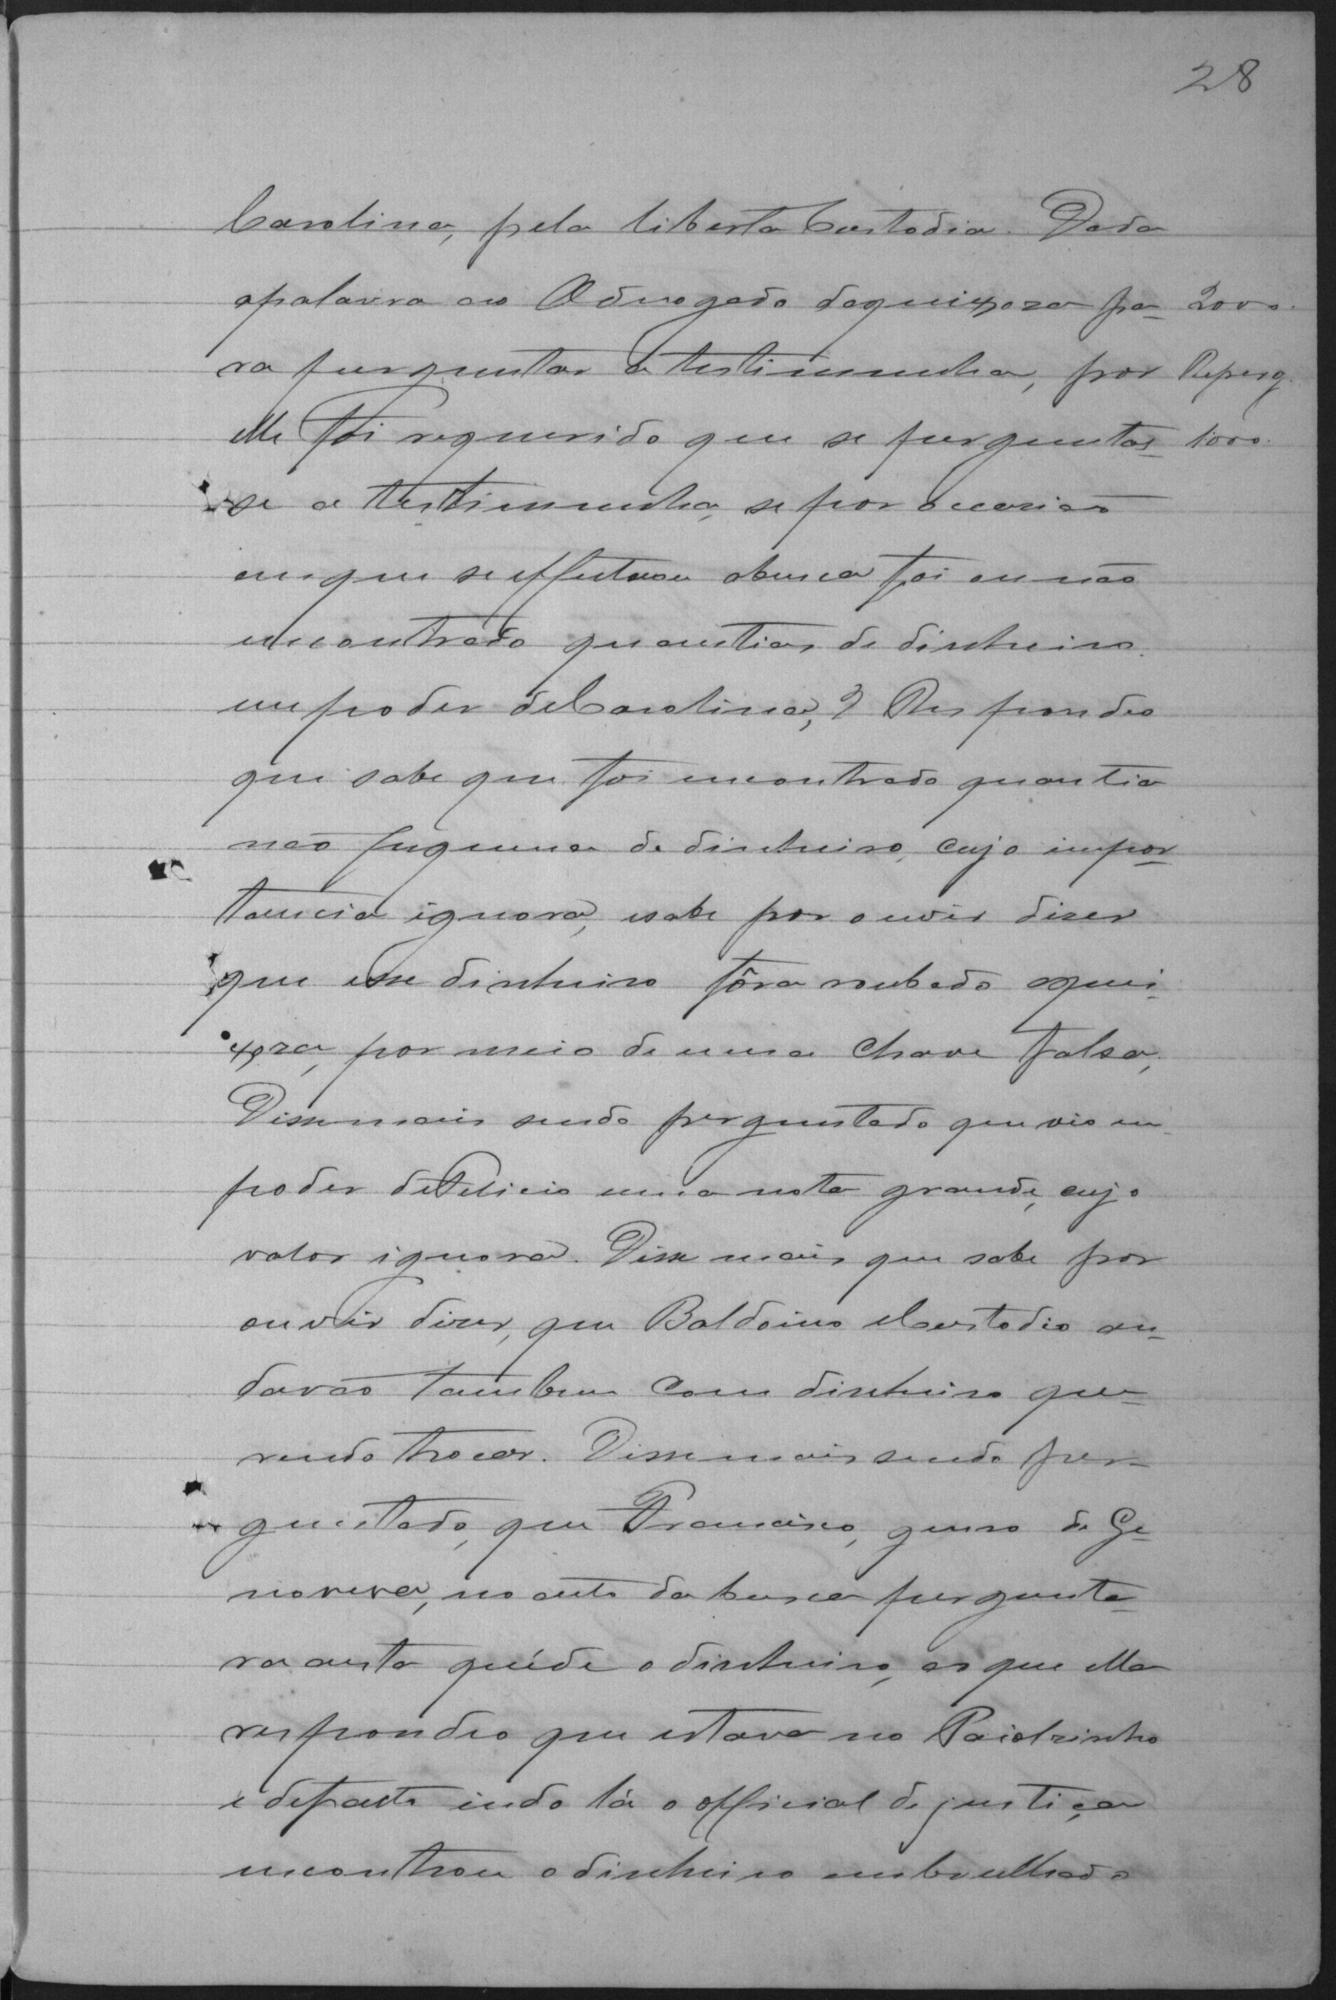 28
Carolina, pela liberta Custodia. Dada
apalavra ao Advogado daqueixoza pa- 2000.
ra perguntar a testimunha, por Reperg.
elle foi requerido que se perguntas- 1000.
se a testimunha, se por occasião
emque seeffetuou abusca foi ou não
encontrado quantias de dinheiro
empoder deCarolina,? Respondeo
que sabe que foi encontrado quantia
não pequena de dinheiro, cujo impor-
tancia ignora, esabe por ouvir diser
que esse dinheiro fôra roubado aquei-
xoza, por meio de uma chave falsa,
Dissemais sendo perguntado que vio em
poder deFelicio uma nota grande, cujo
valor ignora. Disse mais que sabe por
ouvir dizer, que Baldoino eCustodio an-
davão tambem com dinheiro que-
rendo trocar. Disse mais sendo per-
guntado, que Francisco, genro de Ge-
noveva, no acto da busca pergunta-
ra aesta quéde o dinheiro, ao que ella
respondeo que estava no Paiolzinho
e defacto indo lá o official de justiça
encontrou o dinheiro embrulhado